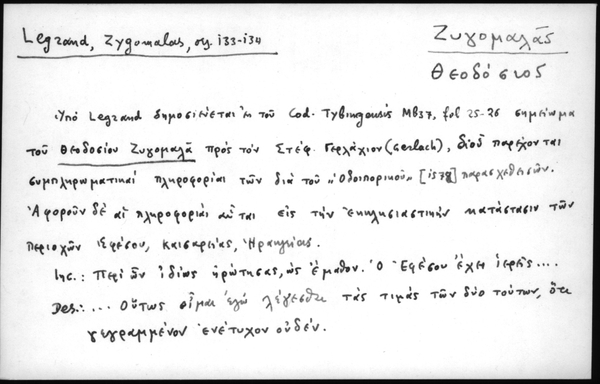 Legrand, Zygomalas, σσ. 133-134
Ζυγομαλᾶς
Θεοδόσιος
Ὑπό Legrand δημοσιεύεται ἐκ τοῦ Cod. Tybingensis Mb37, fol 25-26 σημείωμα
τοῦ Θεοδοσίου Ζυγομαλᾶ πρὸς τὸν Στέφ. Γερλάχιον (Gerlach), δι' οὗ παρέχονται
συμπληρωματικαί πληροφορίαι τῶν διὰ τοῦ „Ὁδοιπορικοῦ" [1578] παρασχεθεισῶν.
Ἀφοροῦν δὲ αἱ πληροφορίαι αὗται εἰς τὴν ἐκκλησιαστικήν κατάστασιν τῶν
περιοχῶν Ἐφέσου, Καισαρείας, Ἡρακλείας.
Inc.: Περὶ ὧν ἰδίως ἠρώτησας, ὡς ἔμαθον. Ὁ Ἐφέσου ἔχει ἱερεῖς....
Des.: ... Οὕτως οἶμαι ἐγώ λέγεσθαι τὰς τιμὰς τῶν δύο τούτων, ὅτι
γεγραμμένον ἐνέτυχον οὐδέν.